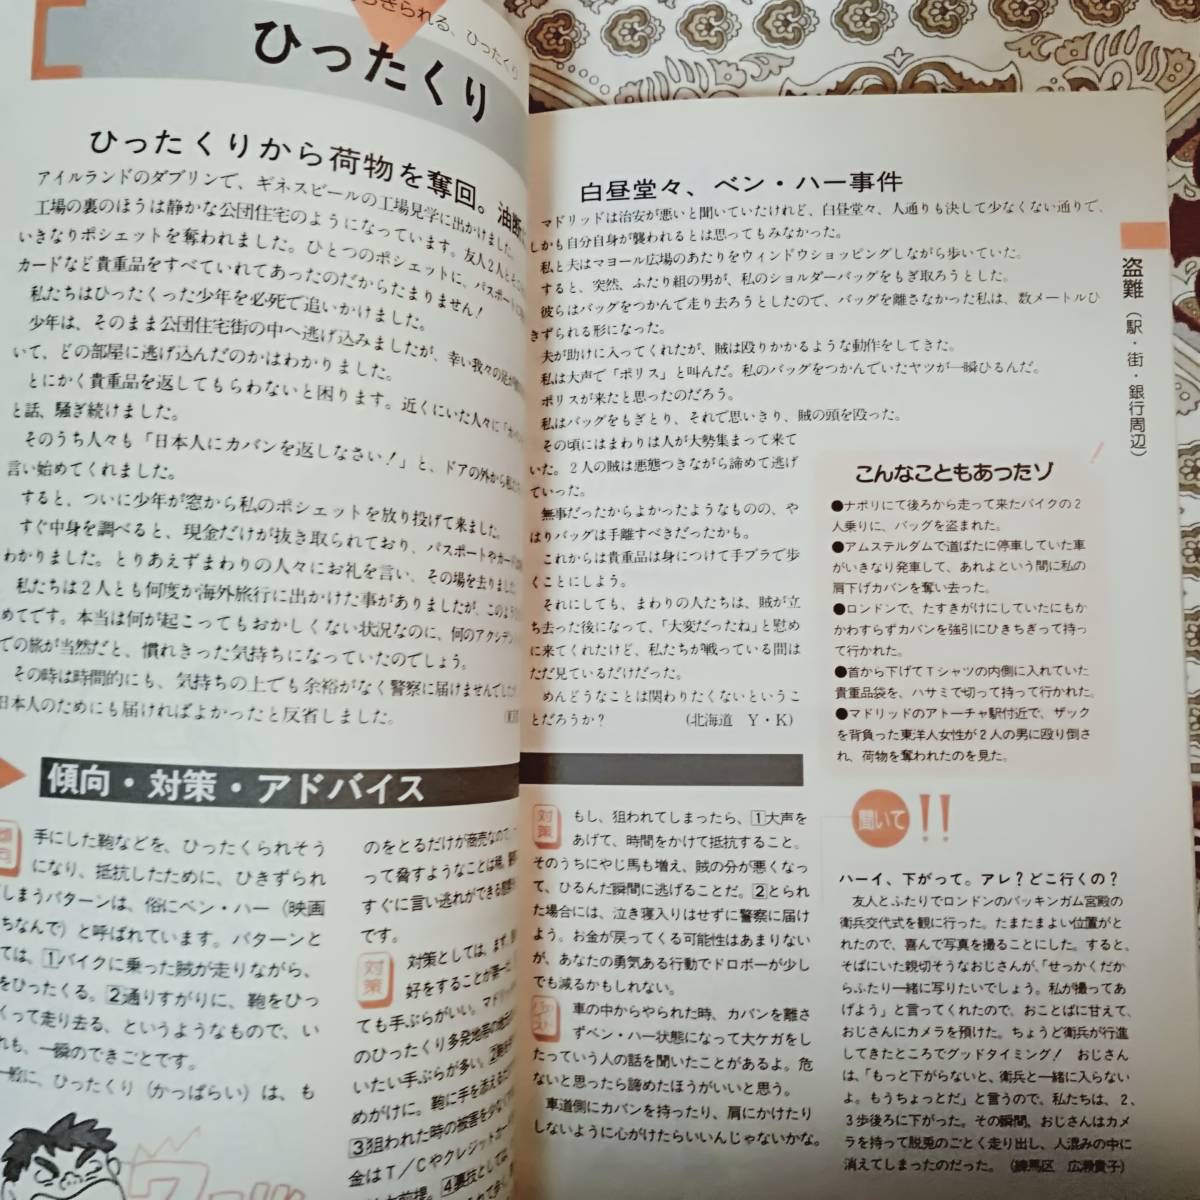 られる、ひったくり
ひったくり
ひったくりから荷物を奪回。油断
アイルランドのダブリンで、ギネスビールの工場見学に出かけました。
工場の裏のほうは静かな公団住宅のようになっています。友人2人と
いきなりポシェットを奪われました。ひとつのポシェットに、パスポート
カードなど貴重品をすべていれてあったのだからたまりません!
私たちはひったくった少年を必死で追いかけました。
少年は、そのまま公団住宅街の中へ逃げ込みましたが、幸い我々の
いて、どの部屋に逃げ込んだのかはわかりました。
とにかく貴重品を返してもらわないと困ります。近くにいた人々に
と話、騒ぎ続けました。
そのうち人々も「日本人にカバンを返しなさい!」と、ドアの外から
言い始めてくれました。
すると、ついに少年が窓から私のポシェットを放り投げて来ました。
すぐ中身を調べると、現金だけが抜き取られており、パスポートやカードは
わかりました。とりあえずまわりの人々にお礼を言い、その場を去りました。
私たちは2人とも何度か海外旅行に出かけた事がありましたが、このような
めてです。本当は何が起こってもおかしくない状況なのに、何のアクシデン
での旅が当然だと、慣れきった気持ちになっていたのでしょう。
その時は時間的にも、気持ちの上でも余裕がなく警察に届けませんでしたが
日本人のためにも届ければよかったと反省しました。
傾向・対策・アドバイス
傾向
手にした鞄などを、ひったくられそう
になり、抵抗したために、ひきずられ
てしまうパターンは、俗にベン・ハー(映画
ちなんで)と呼ばれています。パターンと
ては、1バイクに乗った賊が走りながら、
をひったくる。2通りすがりに、鞄をひっ
くって走り去る、というようなもので、い
れも、一瞬のできごとです。
一般に、ひったくり(かっぱらい)は、も
のをとるだけが商売なので、
って脅すようなことは稀。
すぐに言い逃れができる
です。
対策
対策としては、まず、
好をすることが第一。
ても手ぶらがいい。マドリッ
のひったくり多発地帯の
いたい手ぶらが多い。2
めがけに。鞄に手を添えるだけ
3狙われた時の被害を少なく
金はT/Cやクレジットカー
大前提。4裏技としては
白昼堂々、ベン・ハー事件
マドリッドは治安が悪いと聞いていたけれど、白昼堂々、人通りも決して少なくない通りで、
しかも自分自身が襲われるとは思ってもみなかった。
私と夫はマヨール広場のあたりをウィンドウショッピングしながら歩いていた。
すると、突然、ふたり組の男が、私のショルダーバッグをもぎ取ろうとした。
彼らはバッグをつかんで走り去ろうとしたので、バッグを離さなかった私は、数メートルひ
きずられる形になった。
夫が助けに入ってくれたが、賊は殴りかかるような動作をしてきた。
私は大声で「ポリス」と叫んだ。私のバッグをつかんでいたヤツが一瞬ひるんだ。
ポリスが来たと思ったのだろう。
私はバッグをもぎとり、それで思いきり、賊の頭を殴った。
その頃にはまわりは人が大勢集まって来て
いた。2人の賊は悪態つきながら諦めて逃げ
ていった。
無事だったからよかったようなものの、や
はりバッグは手離すべきだったかも。
これからは貴重品は身につけて手ブラで歩
くことにしよう。
それにしても、まわりの人たちは、賊が立
ち去った後になって、「大変だったね」と慰め
に来てくれたけど、私たちが戦っている間は
ただ見ているだけだった。
めんどうなことは関わりたくないというこ
とだろうか? (北海道 Y・K)
盗難(駅・街・銀行周辺)
こんなこともあったゾ!
●ナポリにて後ろから走って来たバイクの2
人乗りに、バッグを盗まれた。
●アムステルダムで道ばたに停車していた車
がいきなり発車して、あれよという間に私の
肩下げカバンを奪い去った。
●ロンドンで、たすきがけにしていたにもか
かわすらずカバンを強引にひきちぎって持っ
て行かれた。
●首から下げてTシャツの内側に入れていた
貴重品袋を、ハサミで切って持って行かれた。
●マドリッドのアトーチャ駅付近で、ザック
を背負った東洋人女性が2人の男に殴り倒さ
れ、荷物を奪われたのを見た。
対策
もし、狙われてしまったら、1大声を
あげて、時間をかけて抵抗すること。
そのうちにやじ馬も増え、賊の分が悪くなっ
て、ひるんだ瞬間に逃げることだ。2とられ
た場合には、泣き寝入りはせずに警察に届け
よう。お金が戻ってくる可能性はあまりない
が、あなたの勇気ある行動でドロボーが少し
でも減るかもしれない。
車の中からやられた時、カバンを離さ
ずベン・ハー状態になって大ケガをし
たっていう人の話を聞いたことがあるよ。危
ないと思ったら諦めたほうがいいと思う。
車道側にカバンを持ったり、肩にかけたり
しないように心がけたらいいんじゃないかな。
聞いて!!
ハーイ、下がって。アレ?どこ行くの?
友人とふたりでロンドンのバッキンガム宮殿の
衛兵交代式を観に行った。たまたまよい位置がと
れたので、喜んで写真を撮ることにした。すると、
そばにいた親切そうなおじさんが、「せっかくだか
らふたり一緒に写りたいでしょう。私が撮ってあ
げよう」と言ってくれたので、おことばに甘えて、
おじさんにカメラを預けた。ちょうど衛兵が行進
してきたところでグッドタイミング! おじさん
は、「もっと下がらないと、衛兵と一緒に入らない
よ。もうちょっとだ」と言うので、私たちは、2、
3歩後ろに下がった。その瞬間、おじさんはカメ
ラを持って脱兎のごとく走り出し、人混みの中に
消えてしまったのだった。(練馬区 広瀬貴子)